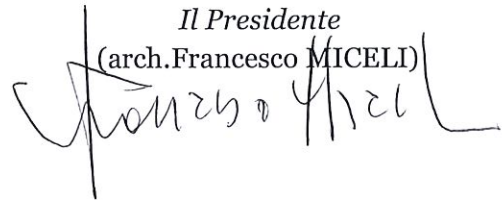 Il Presidente
(arch.Francesco MICELI)
Francesco Miceli